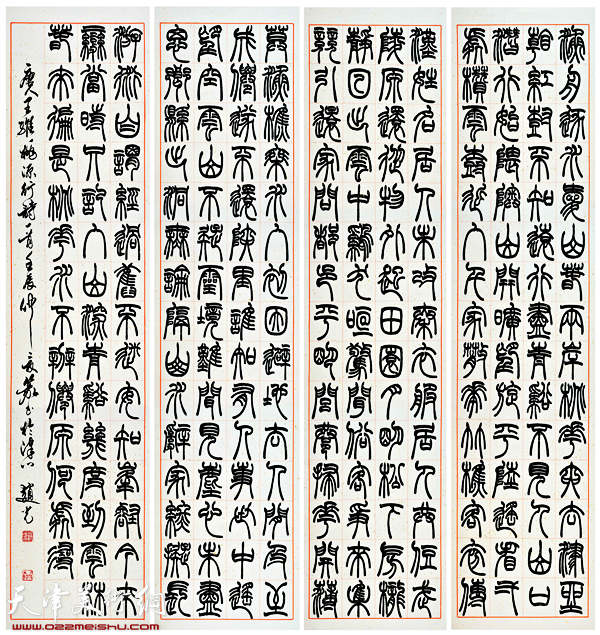 漁舟逐水愛山春兩岸桃花夾去津坐
看紅樹不知遠行盡青溪不見人山口
潛行始隈隩山開曠望旋平陸遙看一
處攢雲樹近入千家散花竹樵客初傳
漢姓名居人未改秦衣服居人共住武
陵源還從物外起田園月明松下房櫳
靜日出雲中雞犬喧驚聞俗客爭來集
競引還家問都邑平明閭巷掃花開薄
暮漁樵乘水入初因避地去人間及至
成仙遂不還峽裏誰知有人事世中遙
望空雲山不疑靈境難聞見塵心未盡
思鄉縣出洞無論隔山水辭家終擬長
游衍自謂經過舊不迷安知峰壑今來
變當時只記入山深青谿幾度到雲林
春來遍是桃花水不辨仙源何處尋
唐王維桃源行詩一首壬辰仲書於津門趙光
天津美术网
www.022meishu.com